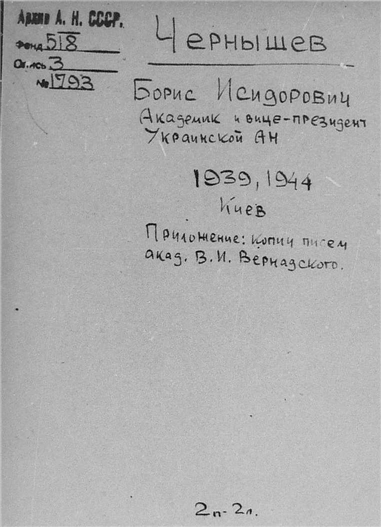 Архив А. Н. СССР.
Фонд 518
Опись 3
№ 1793
Чернышев
Борис Исидорович
Академик и вице-президент
Украинской АН
1939, 1944
Киев
Приложение: копии писем
акад. В. И. Вернадского.
2п-2л.